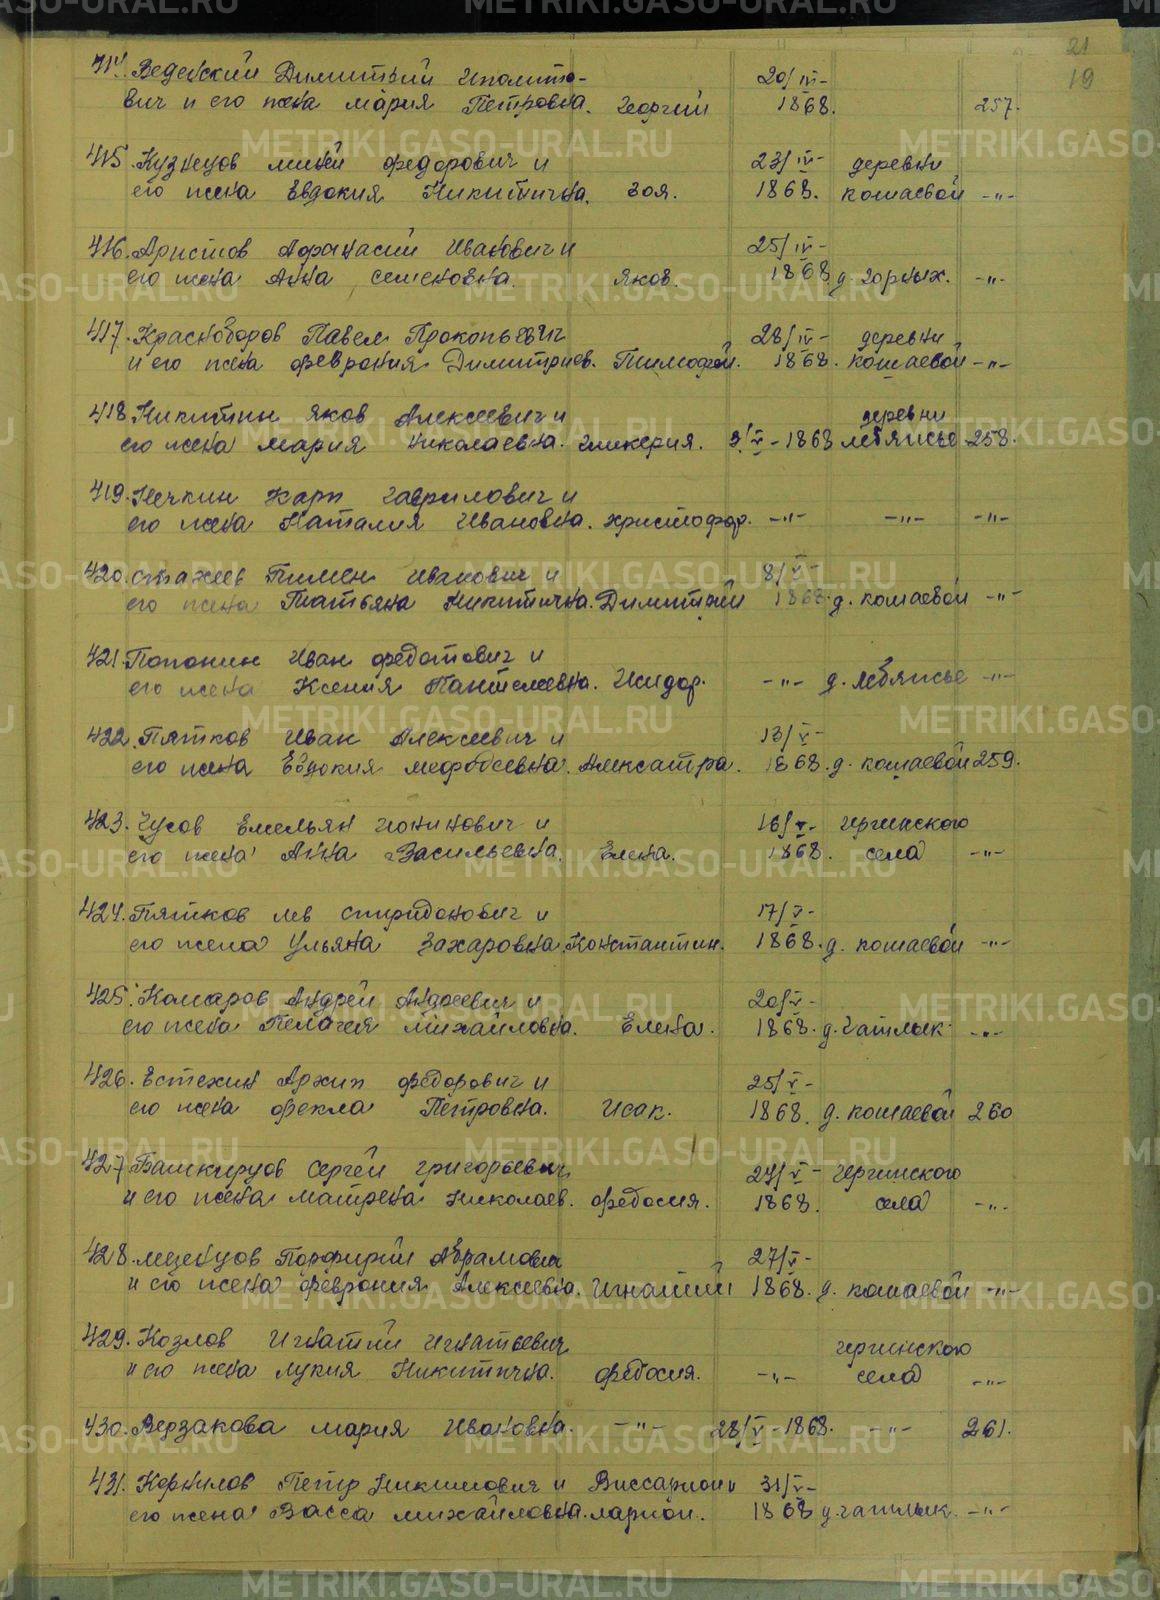 21
19
414. Веденский Димитрий Иполито-
вич и его жена Мария Петровна. Георгий
20/IV-
1868.
257.
415. Кузнецов Миней Федорович и
его жена Евдокия Никитична. Зоя.
23/IV-
1868.
деревни
кошаевой -"-
416. Аристов Афанасий Иванович и
его жена Анна Семеновна. Яков.
25/IV-
1868 д. Горных. -"-
417. Красноборов Павел Прокопьевич
и его жена Феврония Димитриев. Тимофей.
28/IV-
1868.
деревни
кошаевой -"-
418. Никитин Яков Алексеевич и
его жена Мария Николаевна. Гликерия.
2/V-1868
деревни
лебяжье 258.
419. Нечкин Карп Гаврилович и
его жена Наталия Ивановна. Христофор. -"- -"- -"-
420. Стахеев Пимен Иванович и
его жена Татьяна Никитична. Димитрий
8/V-
1868. д. кошаевой -"-
421. Попонин Иван Федотович и
его жена Ксения Пантелеевна. Исидор. -"- д. лебяжье -"-
422. Пятков Иван Алексеевич и
его жена Евдокия Мефодеевна. Алексатра.
13/V-
1868. д. кошаевой 259.
423. Чусов Емельян Иовинович и
его жена Анна Васильевна. Елена.
16/V-
1868.
Иргинского
села -"-
424. Пятков Лев Спиридонович и
его жена Ульяна Захаровна. Константин.
17/V-
1868. д. кошаевой -"-
425. Комаров Андрей Андреевич и
его жена Пелагея Михайловна. Елена.
20/V-
1868. д. Чатлык -"-
426. Естехин Архип Федорович и
его жена Фекла Петровна. Исак.
25/V-
1868. д. кошаевой 260
427. Башкирцов Сергей Григорьевич
и его жена Матрена Николаев. Федосия.
27/V-
1868.
Иргинского
села -"-
428. Мезенцов Порфирий Абрамович
и его жена Феврония Алексеевна. Игнатий
27/V-
1868. д. кошаевой -"-
429. Козлов Игнатий Игнатьевич
и его жена Лукия Никитична. Федосия. -"-
Иргинского
села -"-
430. Верзакова Мария Ивановна. -"- 28/V-1868. -"- 261.
431. Корнилов Петр Никитович и Виссарион и
его жена Васса Михайловна. Ларион.
31/V-
1868 д. Чатлык. -"-
METRIKI.GASO-URAL.RU